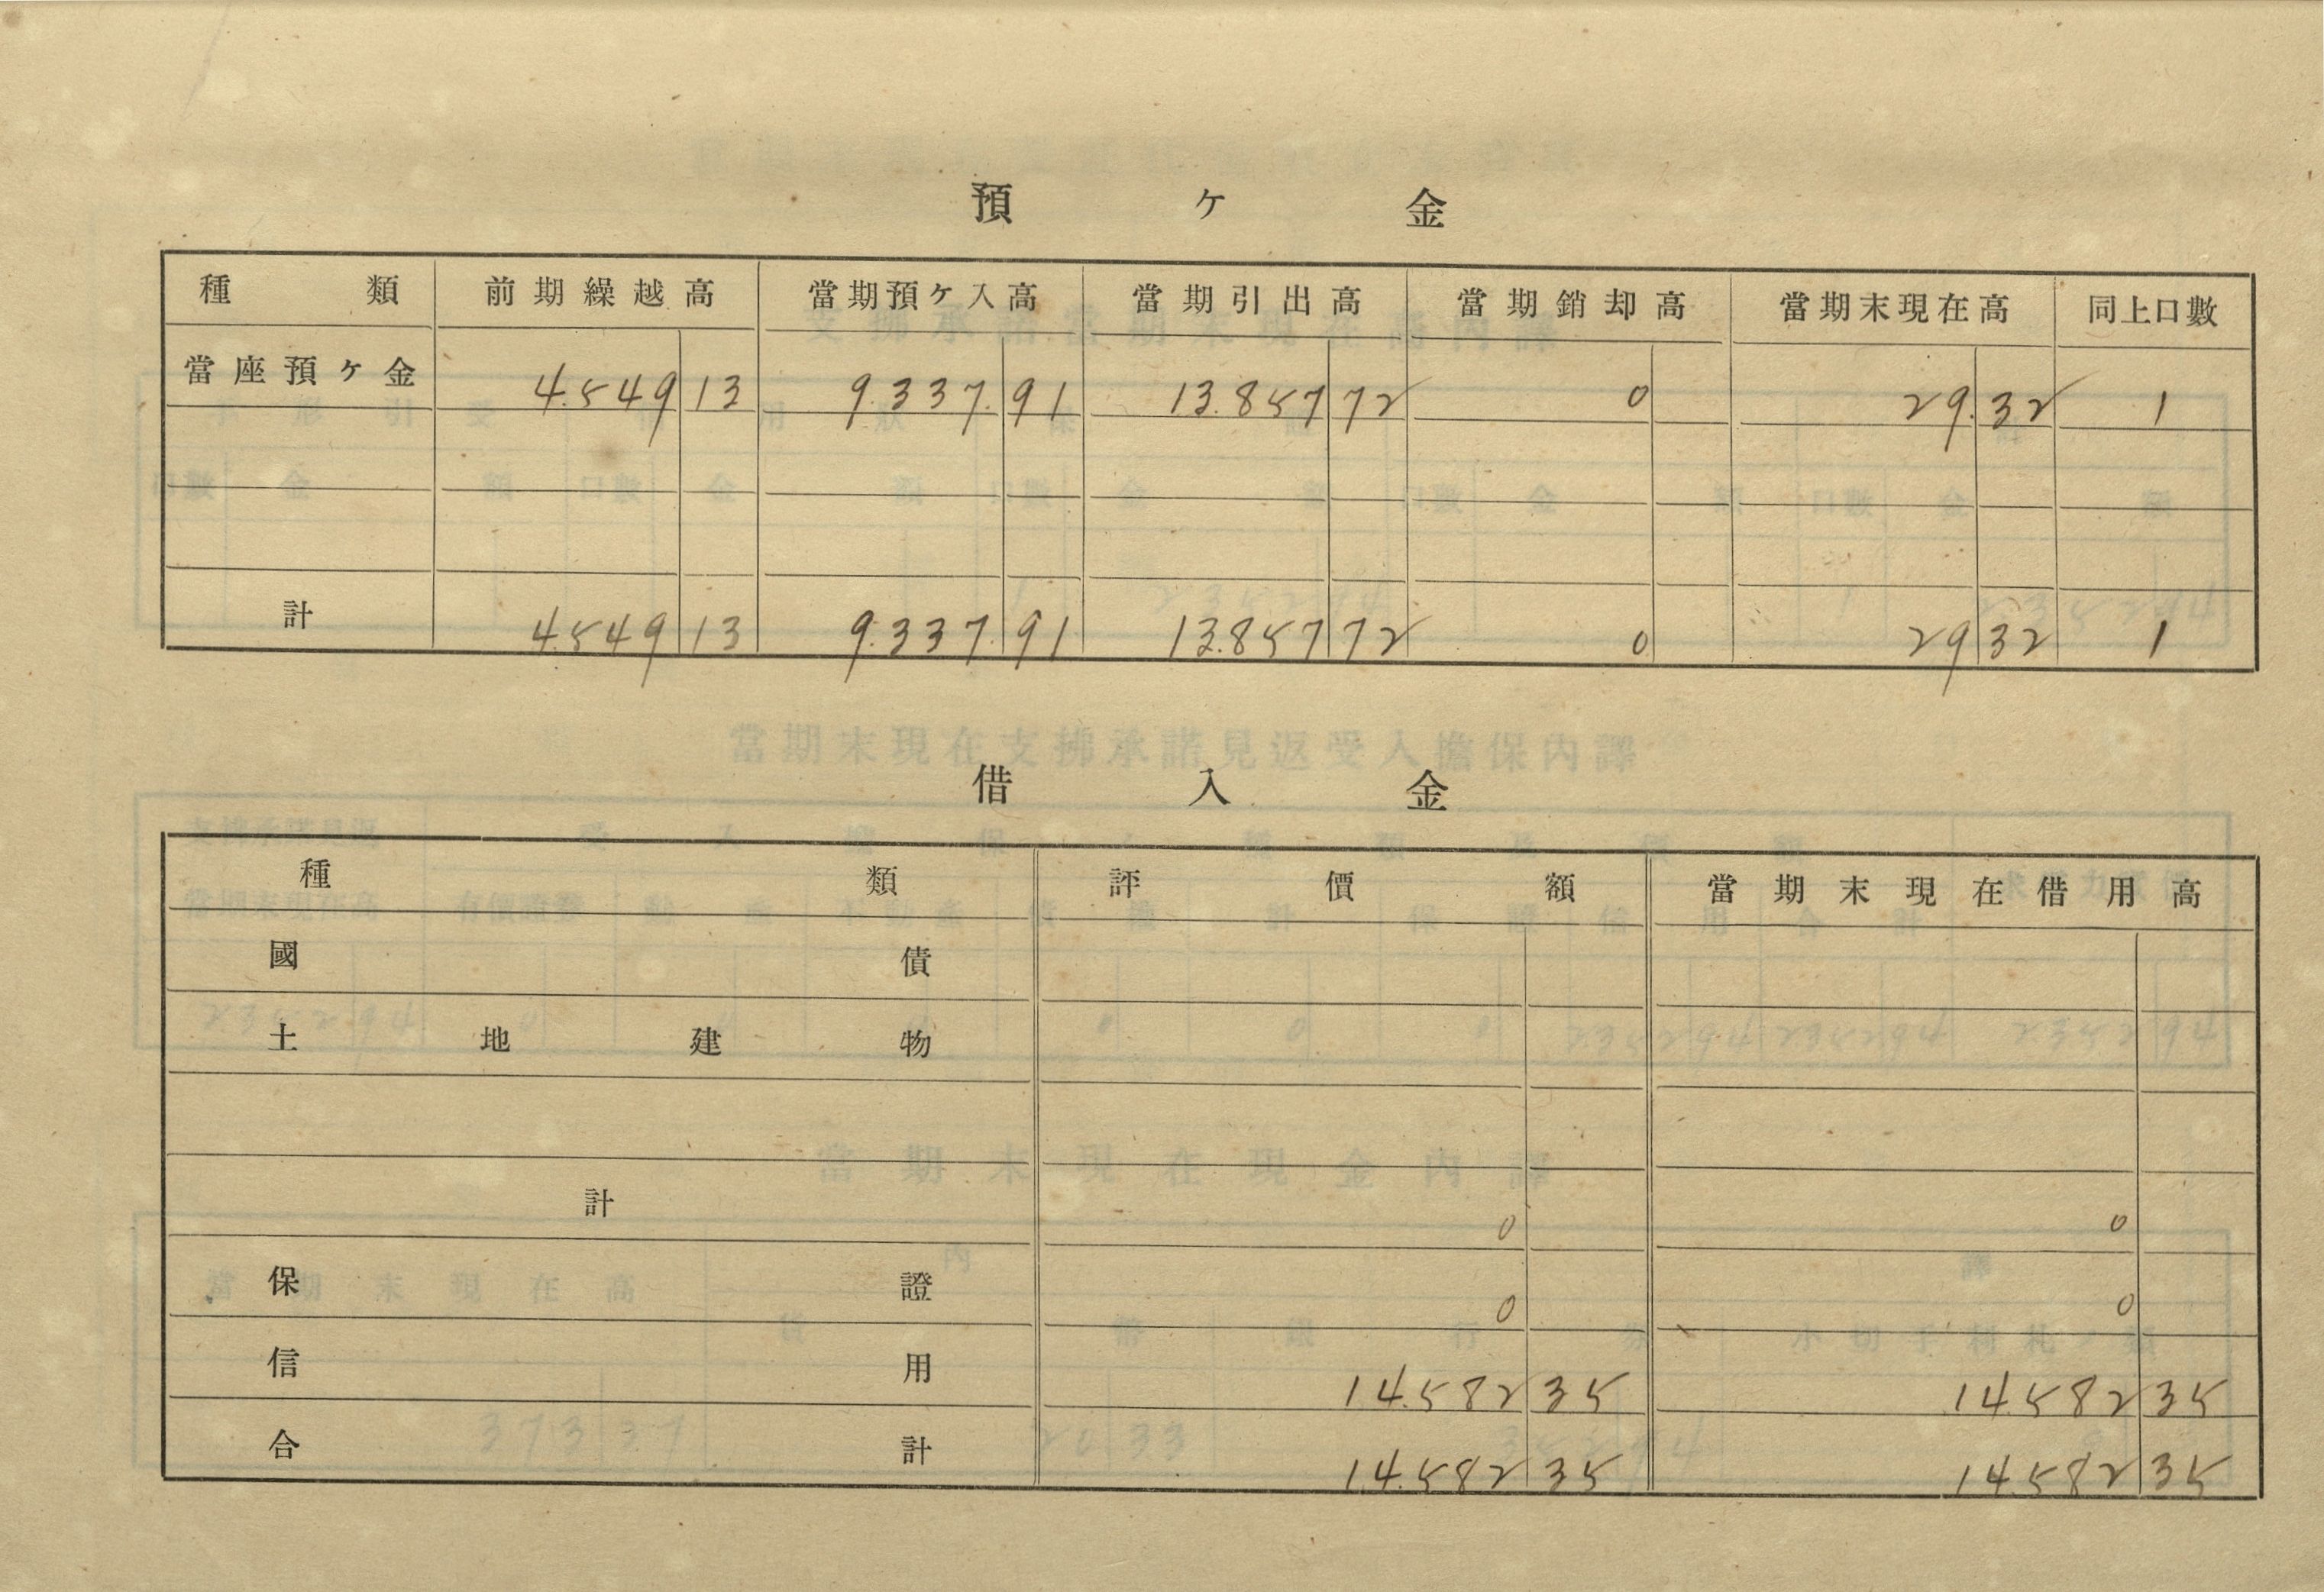 預ケ金
種類 前期繰越高 當期預ケ入高 當期引出高 當期銷却高 當期末現在高 同上口數
當座預ケ金 4.549 13 9.337.91 13.857 72 0 29.32 1
計 4.549 13 9.337.91 13.857 72 0 29 32 1
借入金
種類 評價額 當期末現在借用高
國債
土地建物
計 0 0
保證 0 0
信用 14.582 35 14.582 35
合計 14.582 35 14.582 35